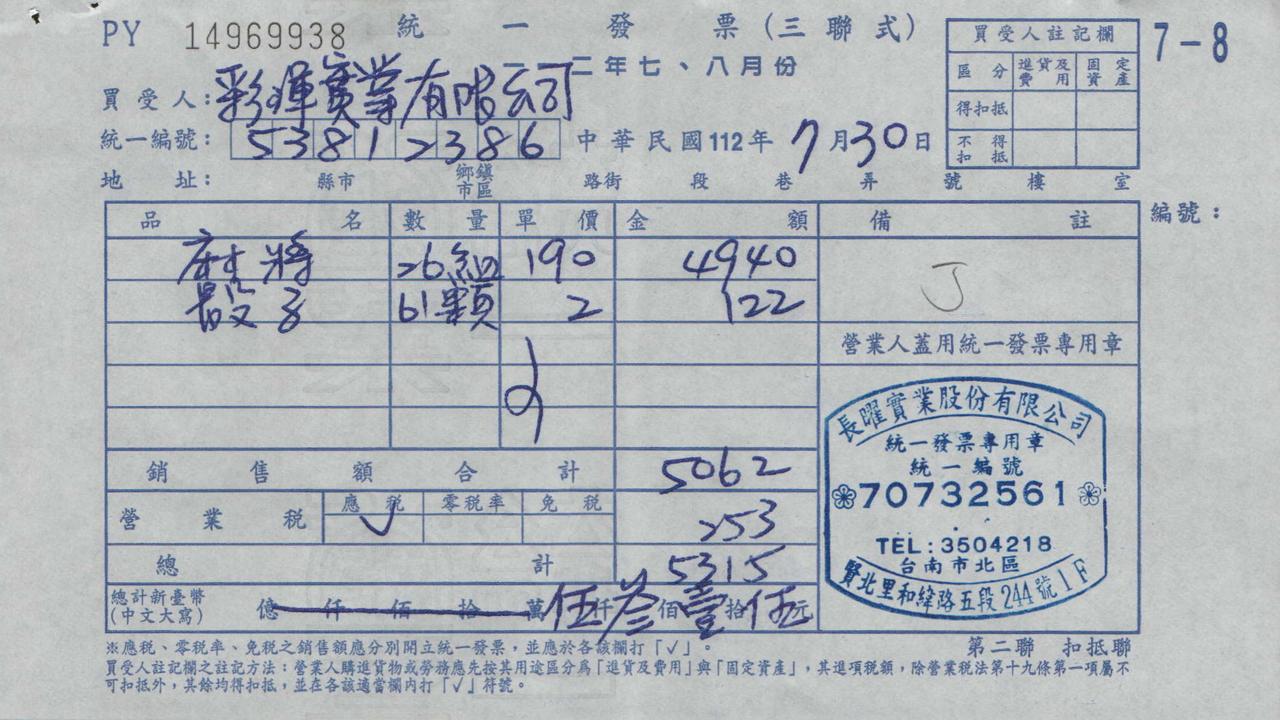 PY 14969938 統一發票(三聯式) 7-8
一一二年七、八月份
買受人註記欄
區分 進貨及費用 固定資產
得扣抵
不得扣抵
買受人:彩琿實業有限公司
統一編號:53812386 中華民國112年7月30日
地址: 縣市 鄉鎮市區 路街 段 巷 弄 號 樓 室
品名 數量 單價 金額 備註 編號:
麻將 26組 190 4940
骰子 61顆 2 122
營業人蓋用統一發票專用章
銷售額合計 5062
營業稅 應稅 ✓ 零稅率 免稅 253
總計 5315
總計新臺幣(中文大寫) 億仟佰拾萬伍仟叁佰壹拾伍元
長曜實業股份有限公司
統一發票專用章
統一編號
70732561
TEL:3504218
台南市北區
賢北里和緯路五段244號1F
※應稅、零稅率、免稅之銷售額應分別開立統一發票,並應於各該欄打「✓」。 第二聯 扣抵聯
買受人註記欄之註記方法:營業人購進貨物或勞務應先按其用途區分為「進貨及費用」與「固定資產」,其進項稅額,除營業稅法第十九條第一項屬不
可扣抵外,其餘均得扣抵,並在各該適當欄內打「✓」符號。